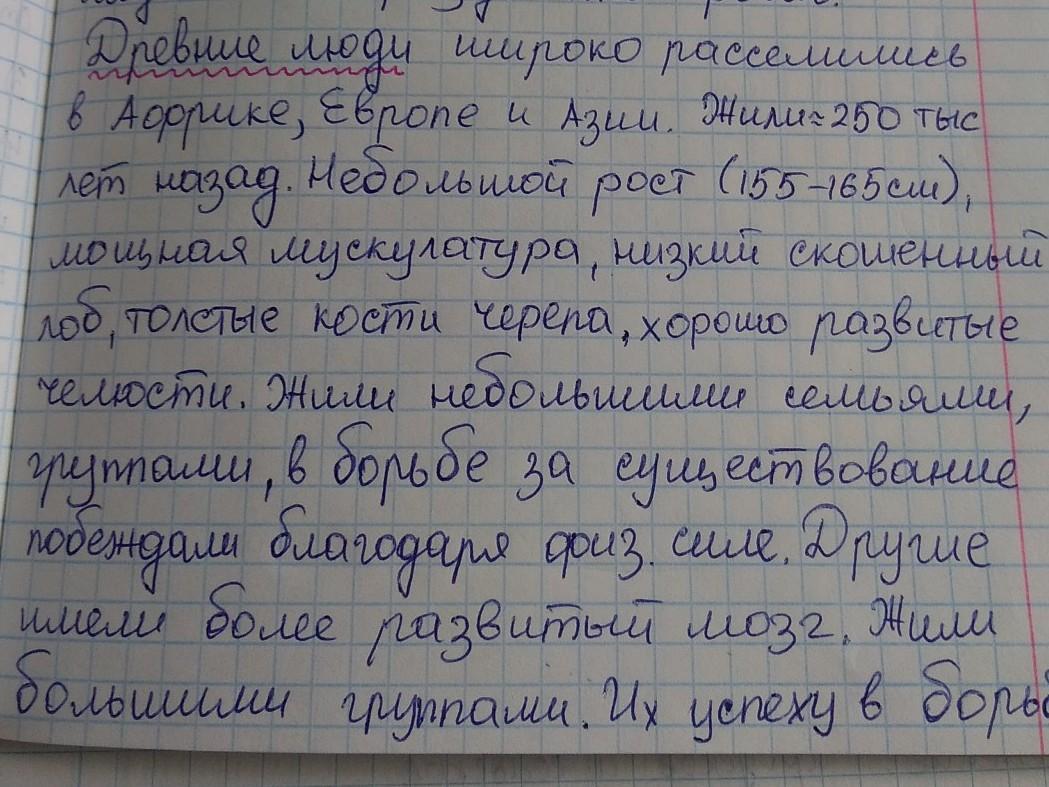 Древние люди широко расселились
в Африке, Европе и Азии. Жили ≈ 250 тыс
лет назад. Небольшой рост (155-165см),
мощная мускулатура, низкий скошенный
лоб, толстые кости черепа, хорошо развитые
челюсти. Жили небольшими семьями,
группами, в борьбе за существование
побеждали благодаря физ. силе. Другие
имели более развитый мозг. Жили
большими группами. Их успеху в борьб